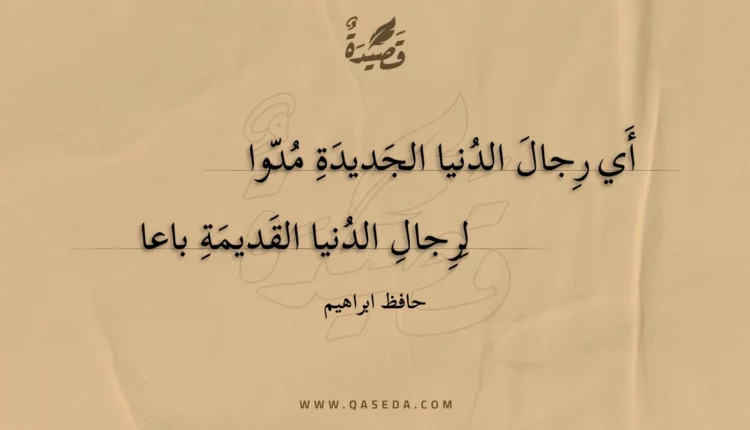 قَصِيدَةٌ
أَي رِجالَ الدُنيا الجَديدَةِ مُدّوا
لِرِجالِ الدُنيا القَديمَةِ باعا
حافظ ابراهيم
WWW.QASEDA.COM